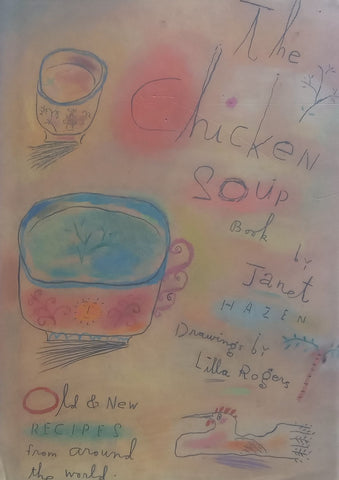 The
Chicken
Soup
Book
by
Janet
HAZEN
Drawings by
Lilla Rogers
Old & New
RECIPES
from around
the world.